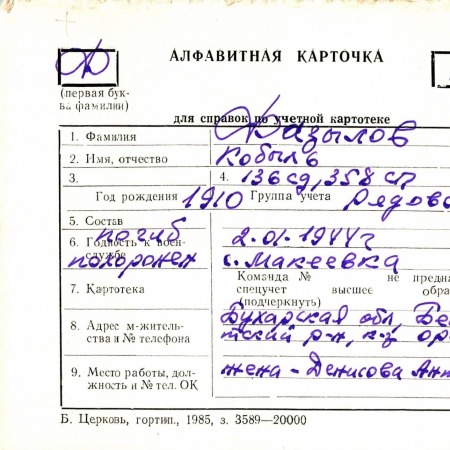 АЛФАВИТНАЯ КАРТОЧКА
Ф
(первая бук-
ва фамилии)
для справок по учетной картотеке
1. Фамилия Фазылов
2. Имя, отчество Кобыль
3. 4. 136 сд, 358 сп
Год рождения 1910 Группа учета Рядово
5. Состав
погиб 2.01.1944г
6. Годность к воен-
службе
похоронен с. Макеевка
7. Картотека
Команда № не предна
спецучет высшее обра
(подчеркнуть)
8. Адрес м-житель-
ства и № телефона
Бухарская обл, Бе
тский р-н, к-з ор
9. Место работы, дол-
жность и № тел. ОК
жена - Денисова Ант
Б. Церковь, гортип., 1985, з. 3589—20000